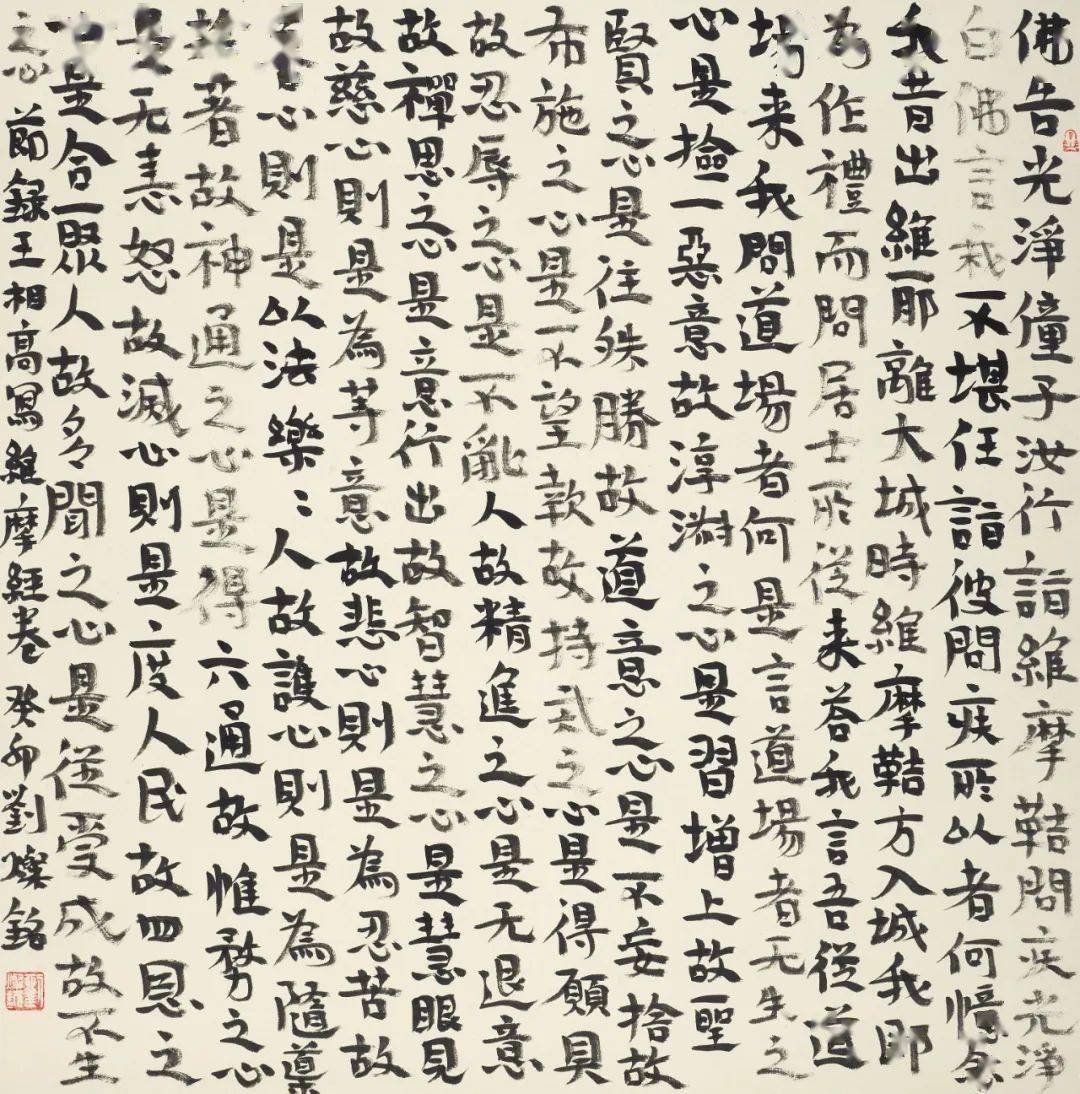 佛告光淨童子汝行詣維摩鞊問疾光淨
白佛言我不堪任詣彼問疾所以者何憶念
我昔出維耶離大城時維摩鞊方入城我即
為作禮而問居士所從来答我言吾從道
場来我問道場者何是言道場者无生之
心是撿一惡意故淳淑之心是習增上故聖
賢之心是往殊勝故道意之心是不妄捨故
布施之心是不望款故持戒之心是得願具
故忍辱之心是不亂人故精進之心是无退意
故禪思之心是意行出故智慧之心是慧眼見
故慈心則是為等意故悲心則是為忍苦故
喜心則是以法樂〻人故護心則是為隨導
故神通之心是得六通故惟務之心
是无恚怒故滅心則是度人民故四恩之
心是合聚人故多聞之心是從受成故不生
之心 節錄王相高寫維摩經卷 癸卯 劉燦銘